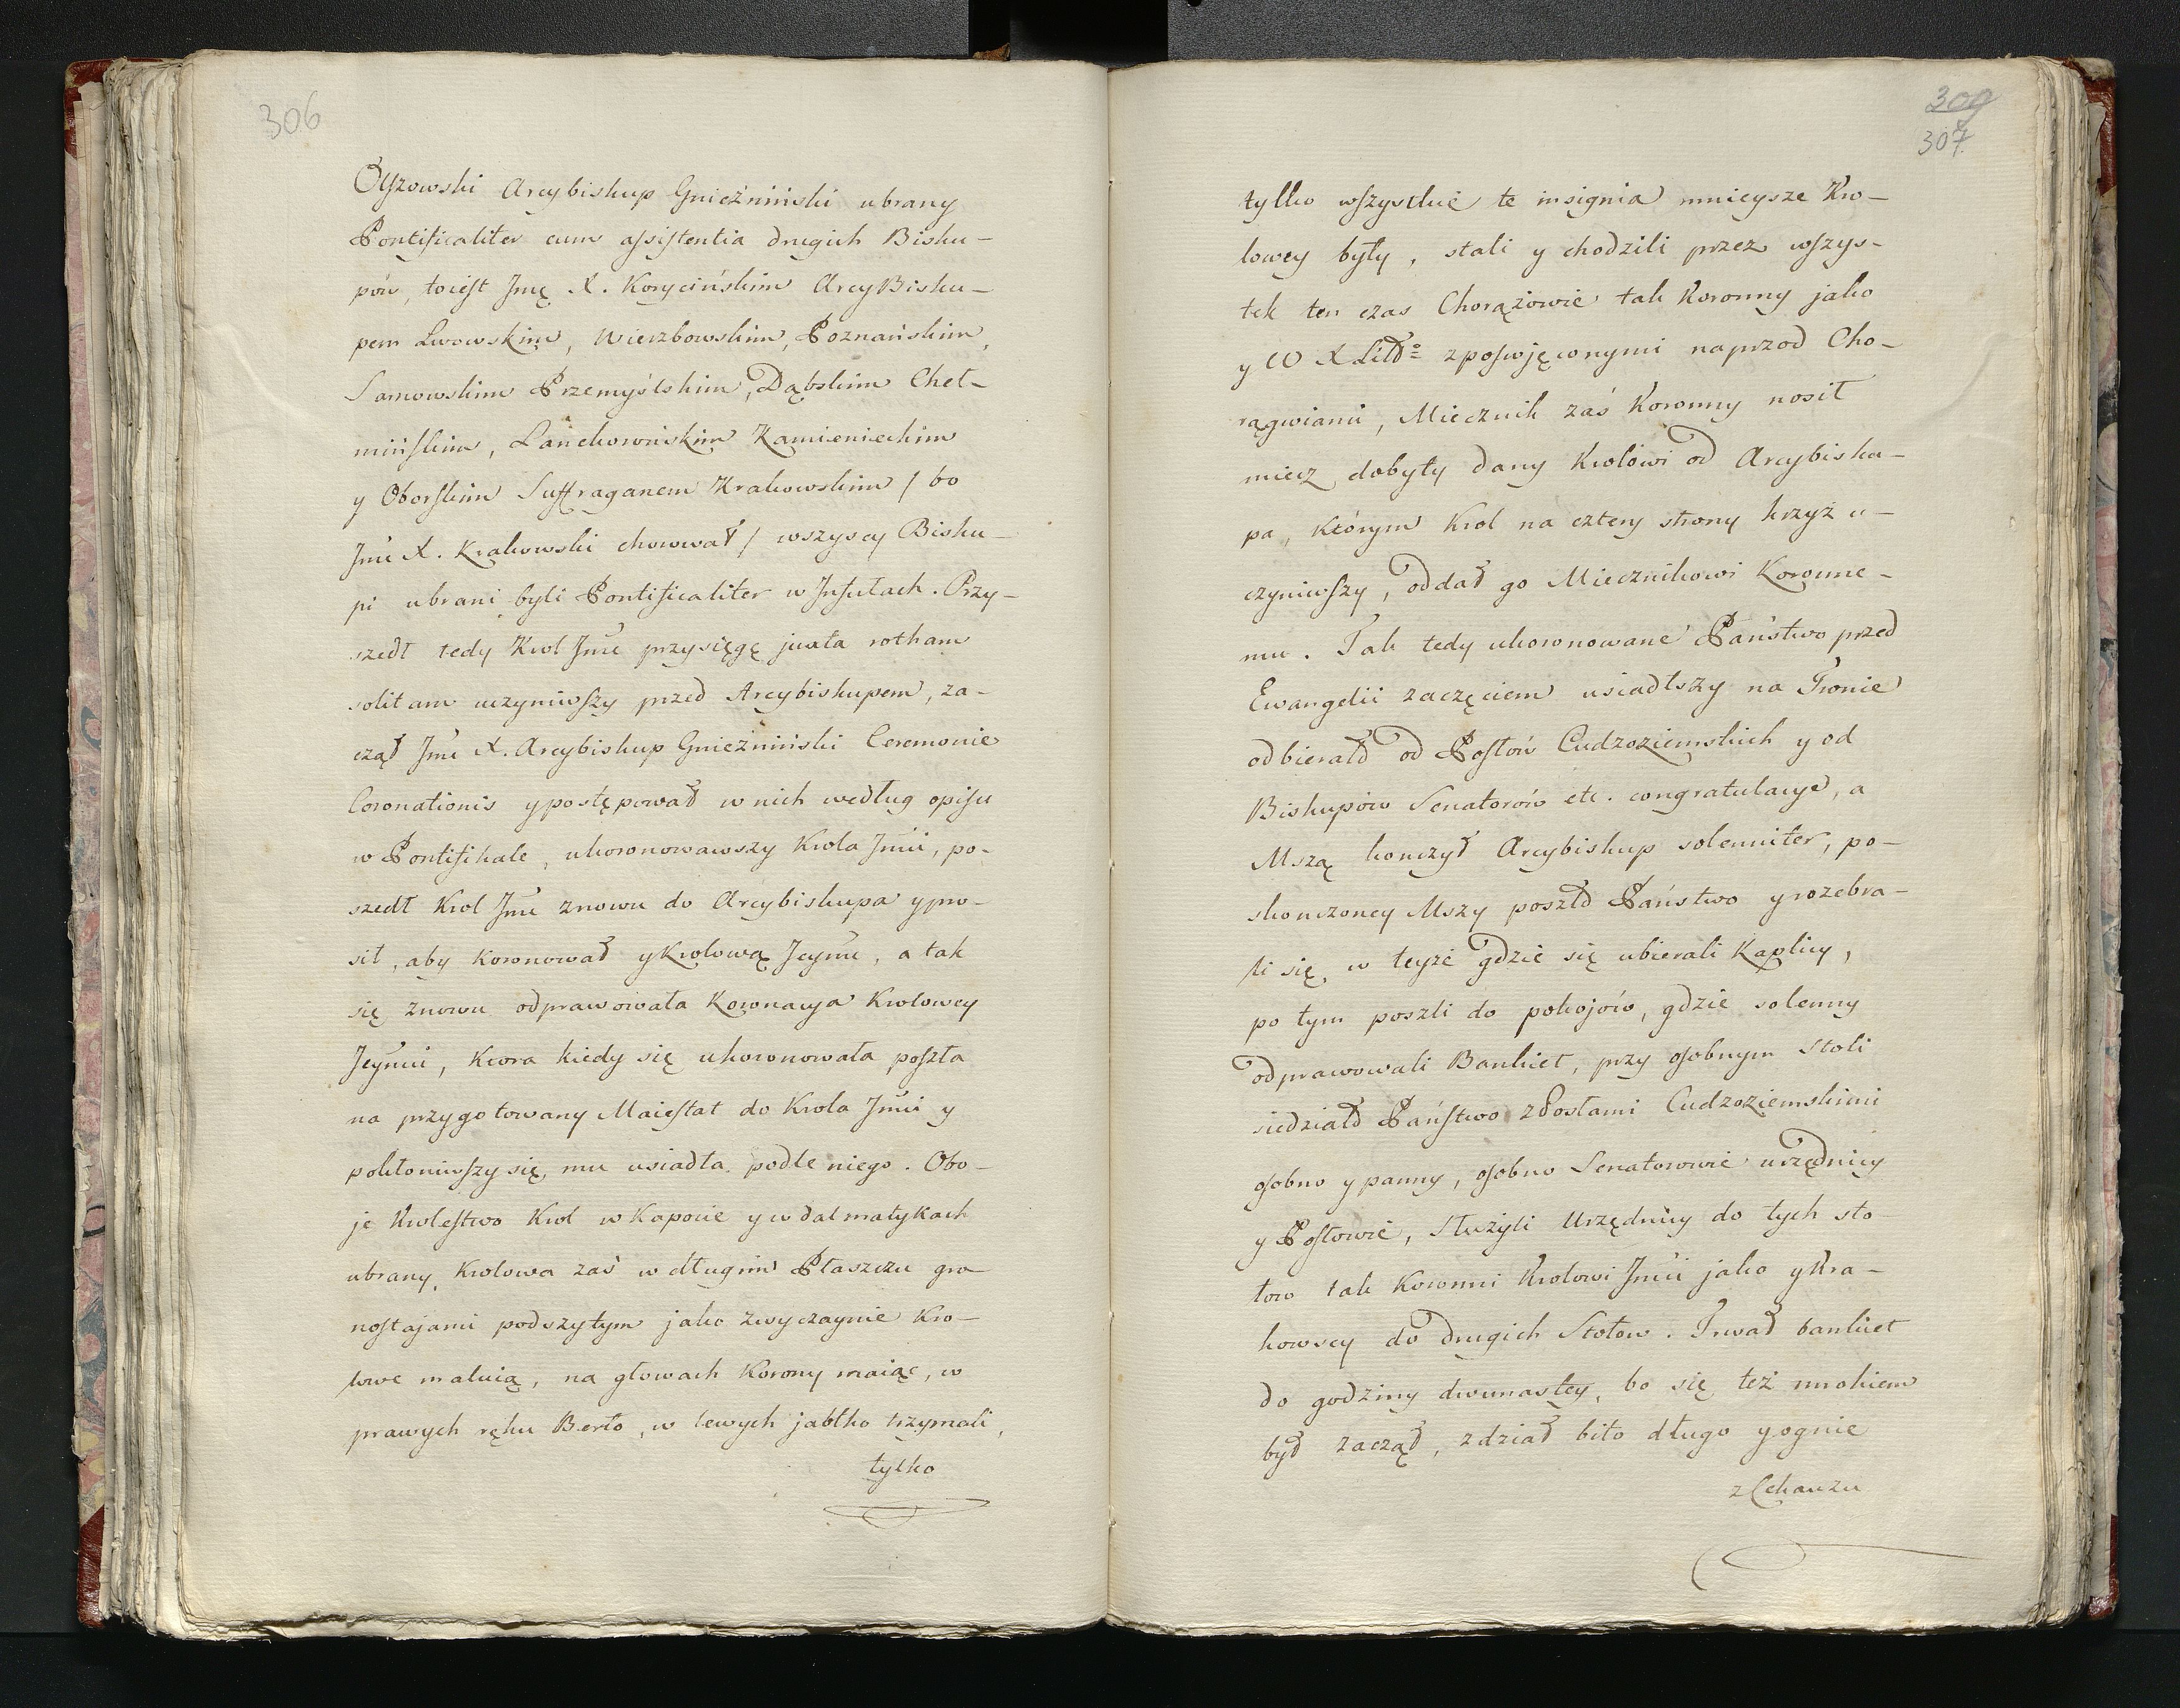 306
Olszowski Arcybiskup Gnieźniński ubrany
Pontificaliter cum assistentia drugich Bisku-
pów, toiest Jmę X. Korycińskim ArcyBisku-
pem Lwowskim, Wierzbowskim, Poznańskim,
Sarnowskim Przemyślskim, Dąbskim Cheł-
mińskim, Lanckorońskim Kamienieckim
y Oborskim Suffraganem Krakowskim / bo
Jmć X. Krakowski chorował / wszyscy Bisku-
pi ubrani byli Pontificaliter w Infułach. Przy-
szedł tedy Krol Jmć przysięgę juxta rotham
solitam uczyniwszy przed Arcybiskupem, za-
czął Jmć X. Arcybiskup Gnieźniński Ceremonie
Coronationis y postępował w nich według opisu
w Pontifikale, ukoronowawszy Krola Jmći, po-
szedł Krol Jmć znowu do Arcybiskupa y pro-
sił, aby koronował y Krolową Jeymć, a tak
się znowu odprawowała Koronacya Krolowey
Jeymći, ktora kiedy się ukoronowała poszła
na przygotowany Maiestat do Krola Jmći y
pokłoniwszy się mu usiadła podle niego. Obo-
je Krolestwo Krol w Kapoie y w dalmatykach
ubrany Krolowa zaś w długim Płaszczu gro-
nostajami podszytym jako zwyczaynie Kro-
lowe maluią, na głowach Korony maiąc, w
prawych ręku Berło, w lewych jabłko trzymali,
tylko
309
307
tylko wszystkie te insignia mnieysze Kro-
lowey były, stali y chodzili przez wszys-
tek ten czas Chorążowie tak Koronny jako
y W X Litto z poswięconymi naprzod Cho-
rągwiami, Miecznik zaś Koronny nosił
miecz dobyty dany Krolowi od Arcybisku-
pa, którym Krol na cztery strony krzyż u-
czyniwszy, oddał go Miecznikowi Koronne-
mu. Tak tedy ukoronowane Państwo przed
Ewangelii zaczęciem usiadłszy na Tronie
odbierało od Posłów Cudzoziemskich y od
Biskupów Senatorów etc. congratulacye, a
Mszą konczył Arcybiskup solenniter, po-
skonczoney Mszy poszło Państwo y rozebra-
li się w teyże gdzie się ubierali Kaplicy,
po tym poszli do pokojów, gdzie solenny
odprawowali Bankiet, przy osobnym stoli
siedziało Państwo z Posłami Cudzoziemskimi
osobno y panny, osobno Senatorowie urzędnicy
y Posłowie, służyli Urzędnicy do tych sto-
łow tak Koronni Krolowi Jmći jako y Kra-
kowscy do drugich Stołow. Trwał bankiet
do godziny dwunastey, bo się też mrokiem
był zaczął, z dział bito długo y ognie
z Cekauzu